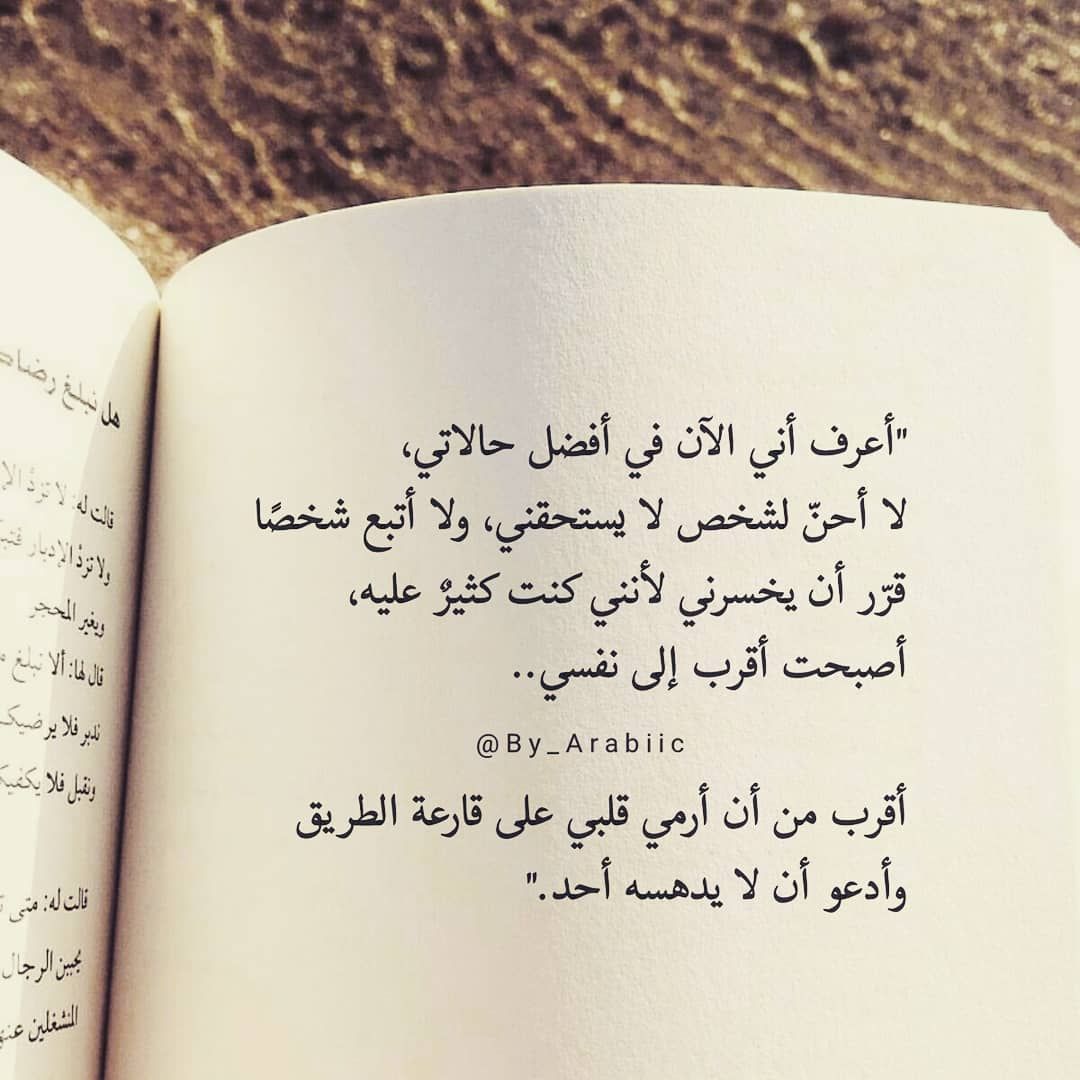 "أعرف أني الآن في أفضل حالاتي،
لا أحنّ لشخص لا يستحقني، ولا أتبع شخصًا
قرّر أن يخسرني لأنني كنت كثيرٌ عليه،
أصبحت أقرب إلى نفسي..
@By_Arabiic
أقرب من أن أرمي قلبي على قارعة الطريق
وأدعو أن لا يدهسه أحد."
هل نبلغ
قالت له: لا تردُّ
ولا تردُّ الإدبار
ويغير المحجر
قال لها: ألا نبلغ
ندبر فلا يرضيك
ونقبل فلا
قالت له: متى
بجبين الرجال
المنشغلين